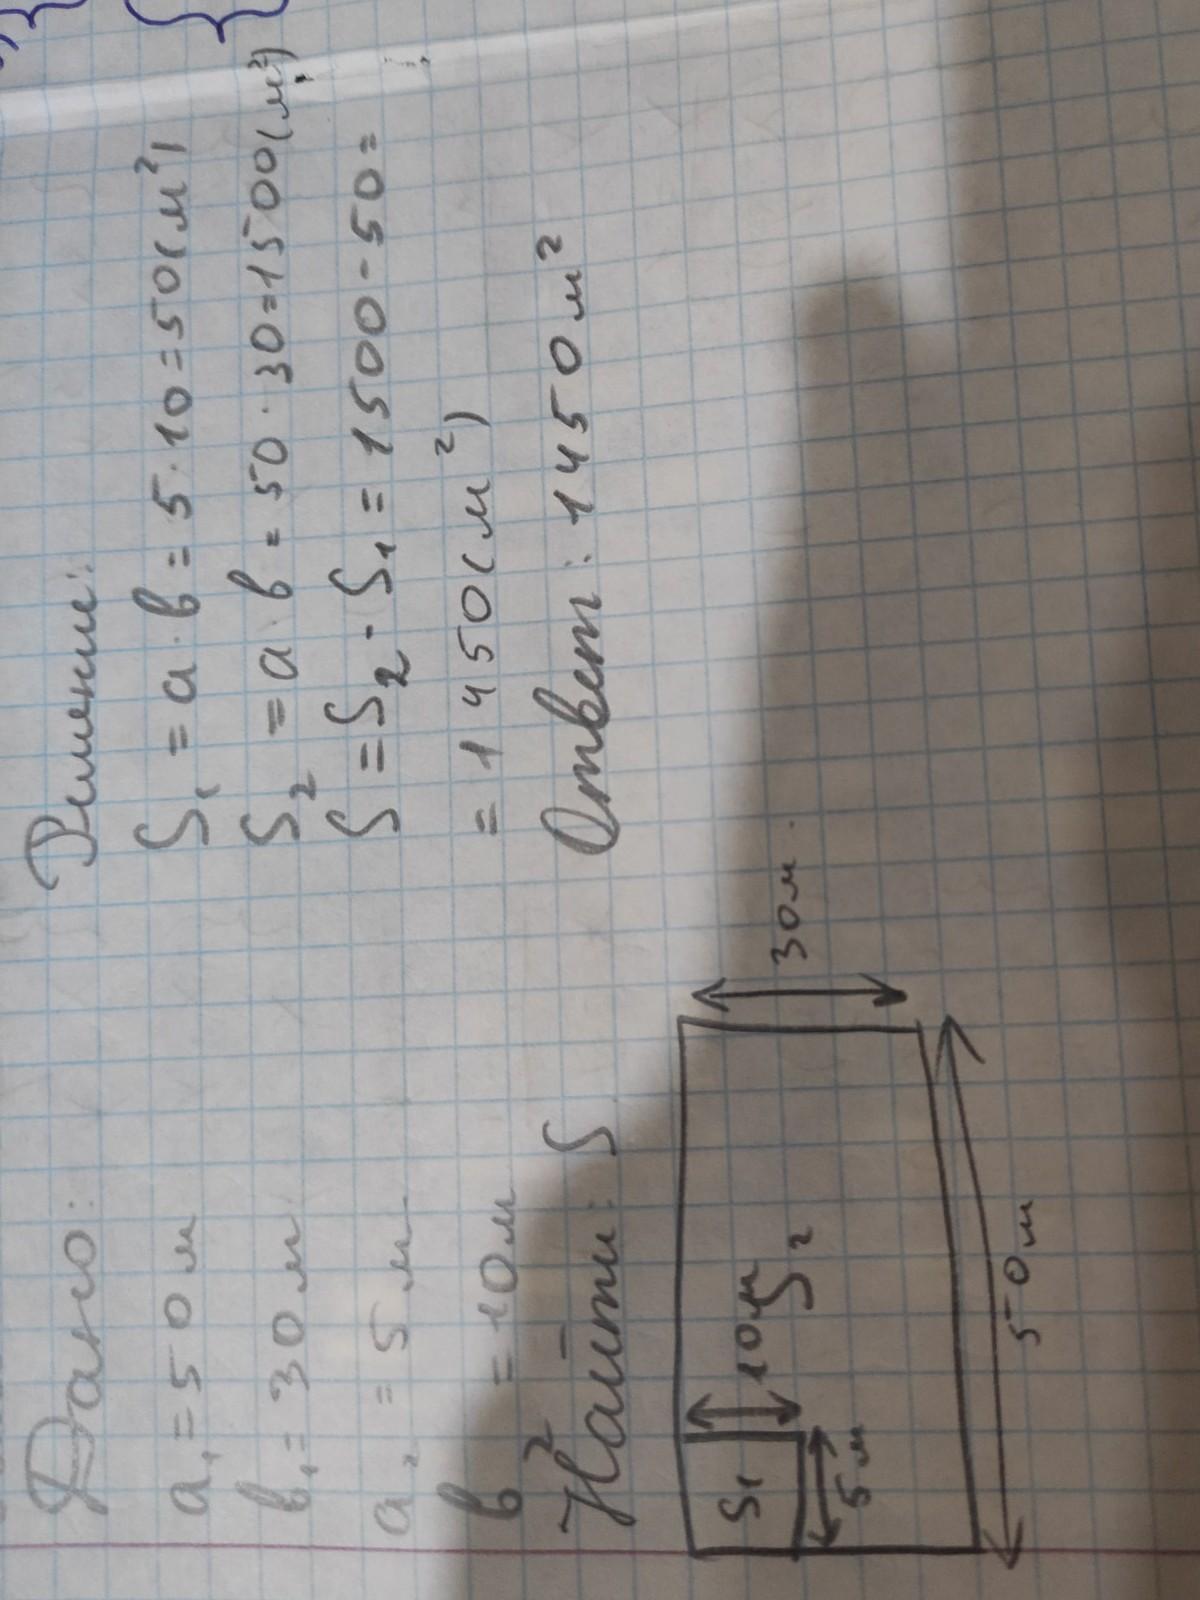 Дано:
a₁ = 50 м
в₁ = 30 м
a₂ = 5 м
в₂ = 10 м
Найти: S
Решение:
S₁ = a · в = 5 · 10 = 50 (м²)
S₂ = a · в = 50 · 30 = 1500 (м²)
S = S₂ - S₁ = 1500 - 50 =
= 1450 (м²)
Ответ: 1450 м²
30 м
S₁
10 м
S₂
5 м
50 м